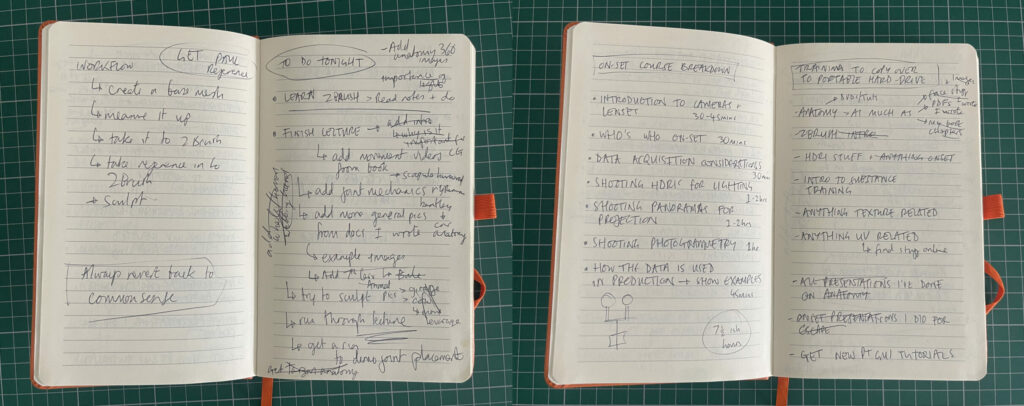 WORKFLOW
GET
Reference
↳ create a base mesh
↳ it up
↳ take it to ZBrush
↳ take reference into
ZBrush
→ Sculpt
Always revert back to
commonsense
TO DO TONIGHT
- Add
anatomy 360
images
importance of
• LEARN ZBRUSH > Read notes + do
• FINISH LECTURE → add intro
↳ why is it
important for
CG
↳ add movement videos
from book
↳ add joint mechanics
↳ add more general pics +
from docs I wrote
anatomy
↳ example images
↳ Add
↳ try to sculpt > giraffe
leverage
↳ run through lecture
↳ get a rig
to demo joint placement
anatomy
ON-SET COURSE BREAKDOWN
• INTRODUCTION TO CAMERAS +
LENSET
30-45mins
• WHO'S WHO ON-SET 30 mins
• DATA ACQUISITION CONSIDERATIONS
30 min
• SHOOTING HDRIS FOR LIGHTING
1-2hrs
• SHOOTING PANORAMAS FOR
PROJECTION
1-2hrs
• SHOOTING PHOTOGRAMMETRY 1hr
• HOW THE DATA IS USED
IN PRODUCTION → SHOW EXAMPLES
45mins
7½ ish
hours
TRAINING TO COPY OVER
TO PORTABLE HARD-DRIVE
+ images
→ DVDS/TUTS
→ face stuff
→ PDFs I wrote
- ANATOMY → AS MUCH AS I wrote
→ new book
chapters
- ZBRUSH INTRO
- HDRI STUFF + ANYTHING ONSET
- INTRO TO SUBSTANCE
TRAINING
- ANYTHING TEXTURE RELATED
- ANYTHING UV RELATED
↳ find stuff online
- ALL PRESENTATIONS I'VE DONE
ON ANATOMY
- ONSET PRESENTATIONS I DID FOR
ESCAPE
- GET NEW PT GUI TUTORIALS